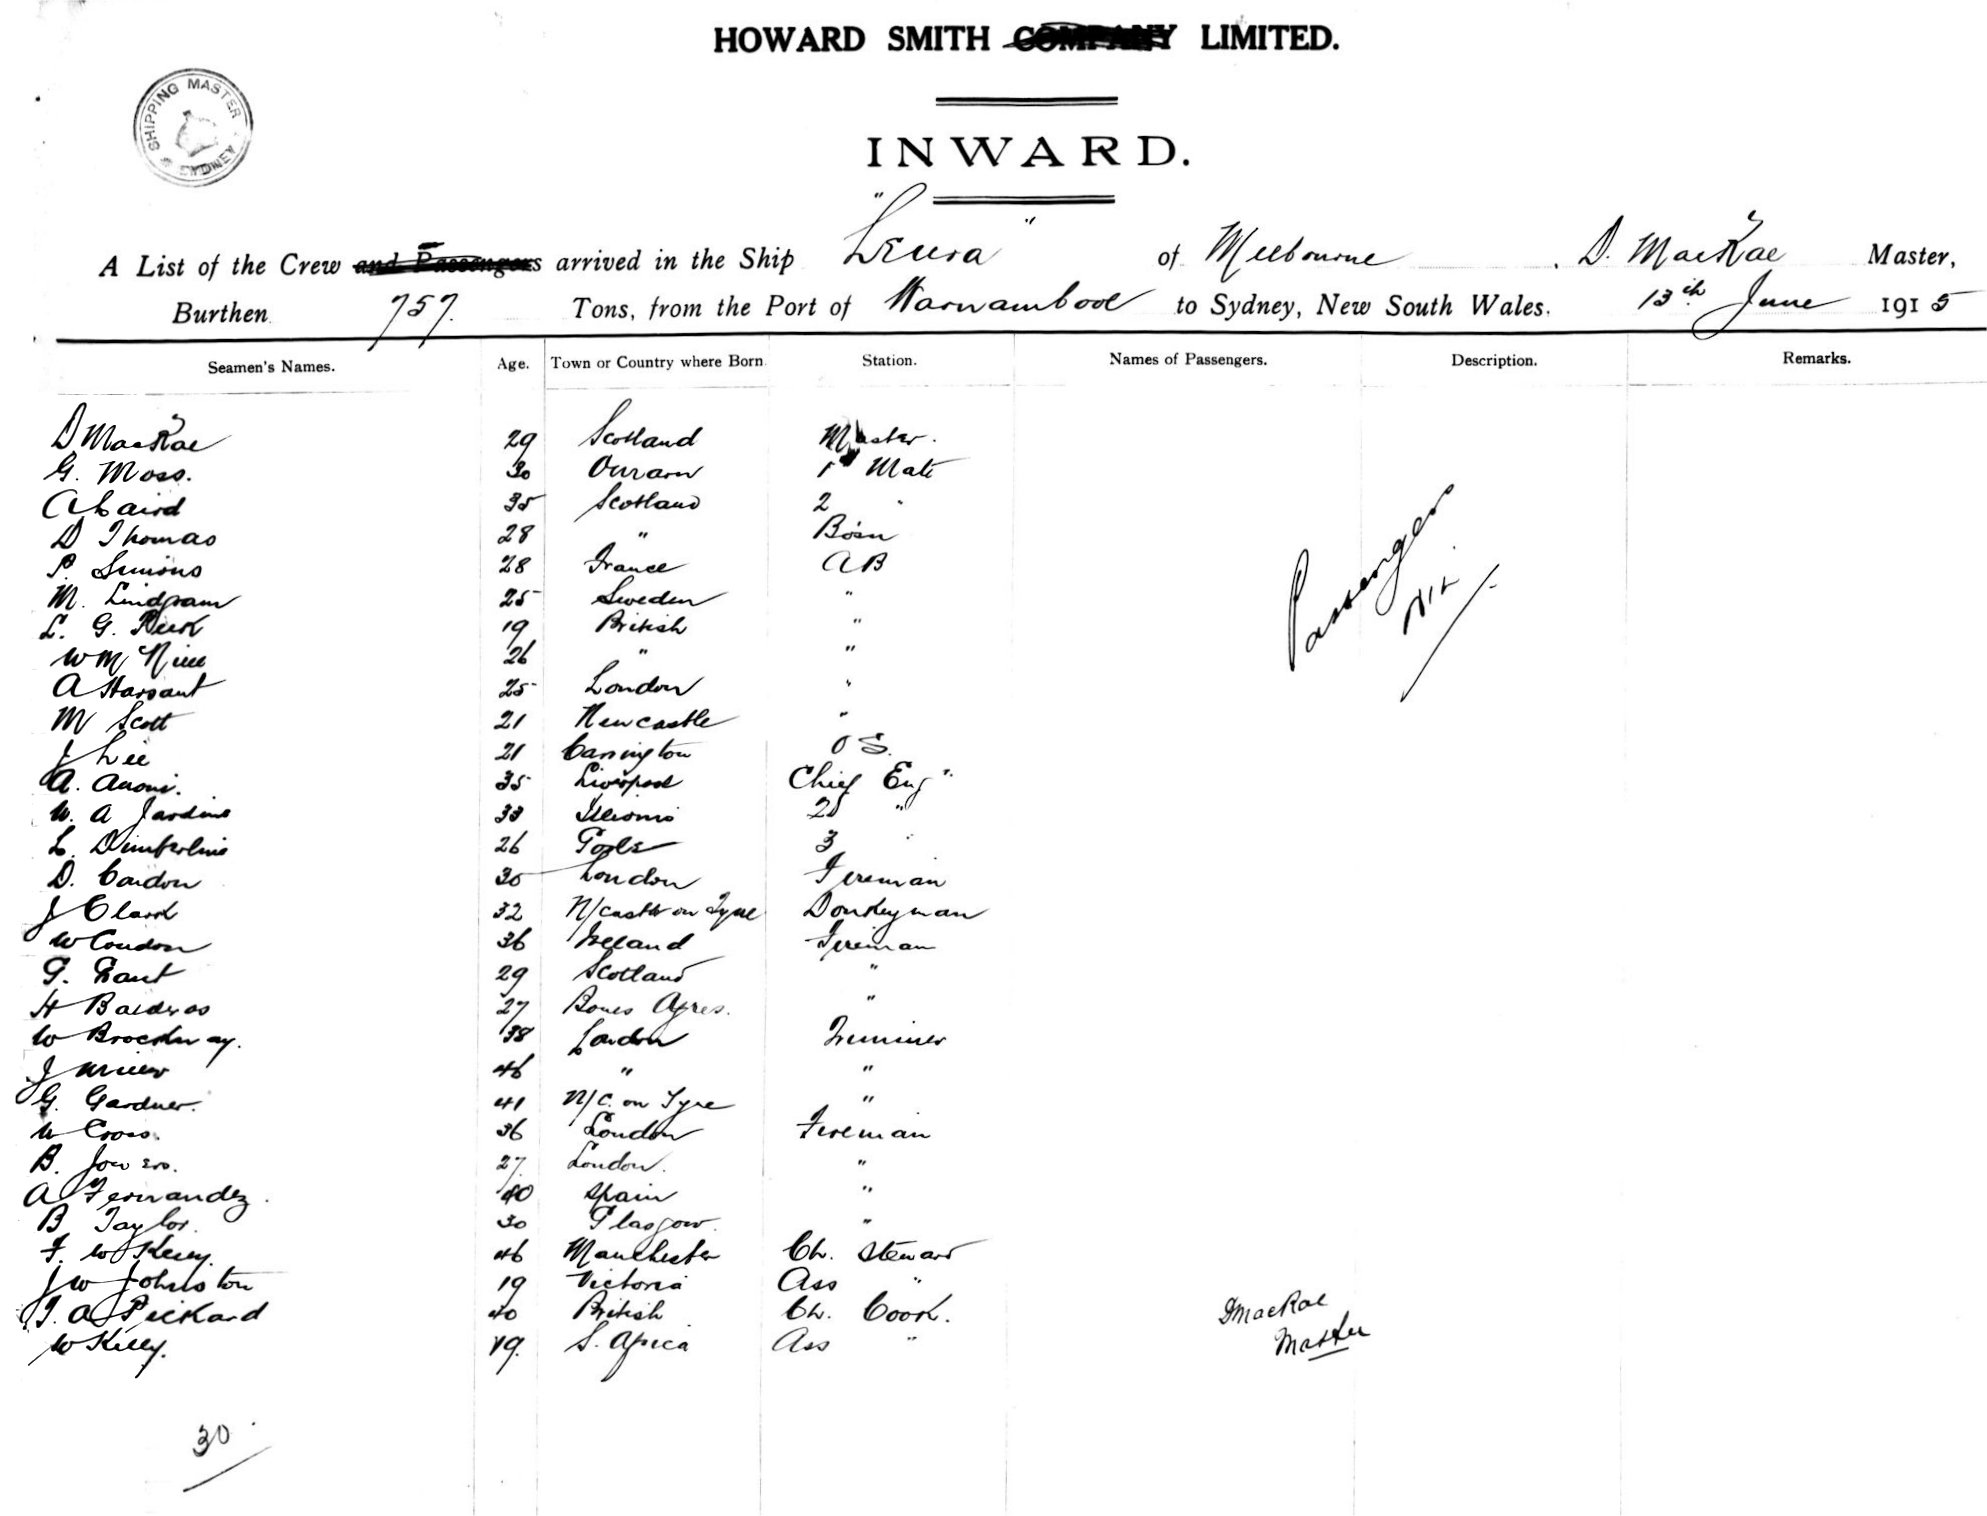 HOWARD SMITH COMPANY LIMITED.
SHIPPING MASTER
SYDNEY
INWARD.
A List of the Crew and Passengers arrived in the Ship "Leura" of Melbourne D. MacRae Master,
Burthen 757. Tons, from the Port of Warnambool to Sydney, New South Wales. 13th June 1915
Seamen's Names. Age. Town or Country where Born Station. Names of Passengers. Description. Remarks.
D MacRae 29 Scotland Master.
G. Moss. 30 1 Mate
A Laird 35 Scotland 2 "
D Thomas 28 " Bosn
P. Simons 28 France AB
M. Lindgram 25 Sweden "
L. G. 19 British "
Wm 26 " "
A Harsant 25 London "
M Scott 21 Newcastle "
J Lee 21 Carrington OS.
A. 35 Liverpool Chief Engr
W. A Jardine 33 2d "
L. Dimberline 26 Poole 3 "
D. Cardon 30 London Fireman
J Clark 32 N/castle on Tyne Donkeyman
W Condon 36 Ireland Fireman
G. Gant 29 Scotland "
H 27 Bones Ayres. "
W Brockway. 38 London Trimmer
J Miller 46 " "
G. Gardner. 41 N/C. on Tyne "
W Cross. 36 London Fireman
B. 27. London. "
A Fernandez. 40 Spain "
B Taylor. 30 Glasgow. "
F. W Kelly. 46 Manchester Ch. Steward
J W Johnston 19 Victoria Ass "
T. A Pickard 40 British Ch. Cook.
W Kelly. 19. S. Africa Ass "
Passengers
Nil
DMacRae
Master
30